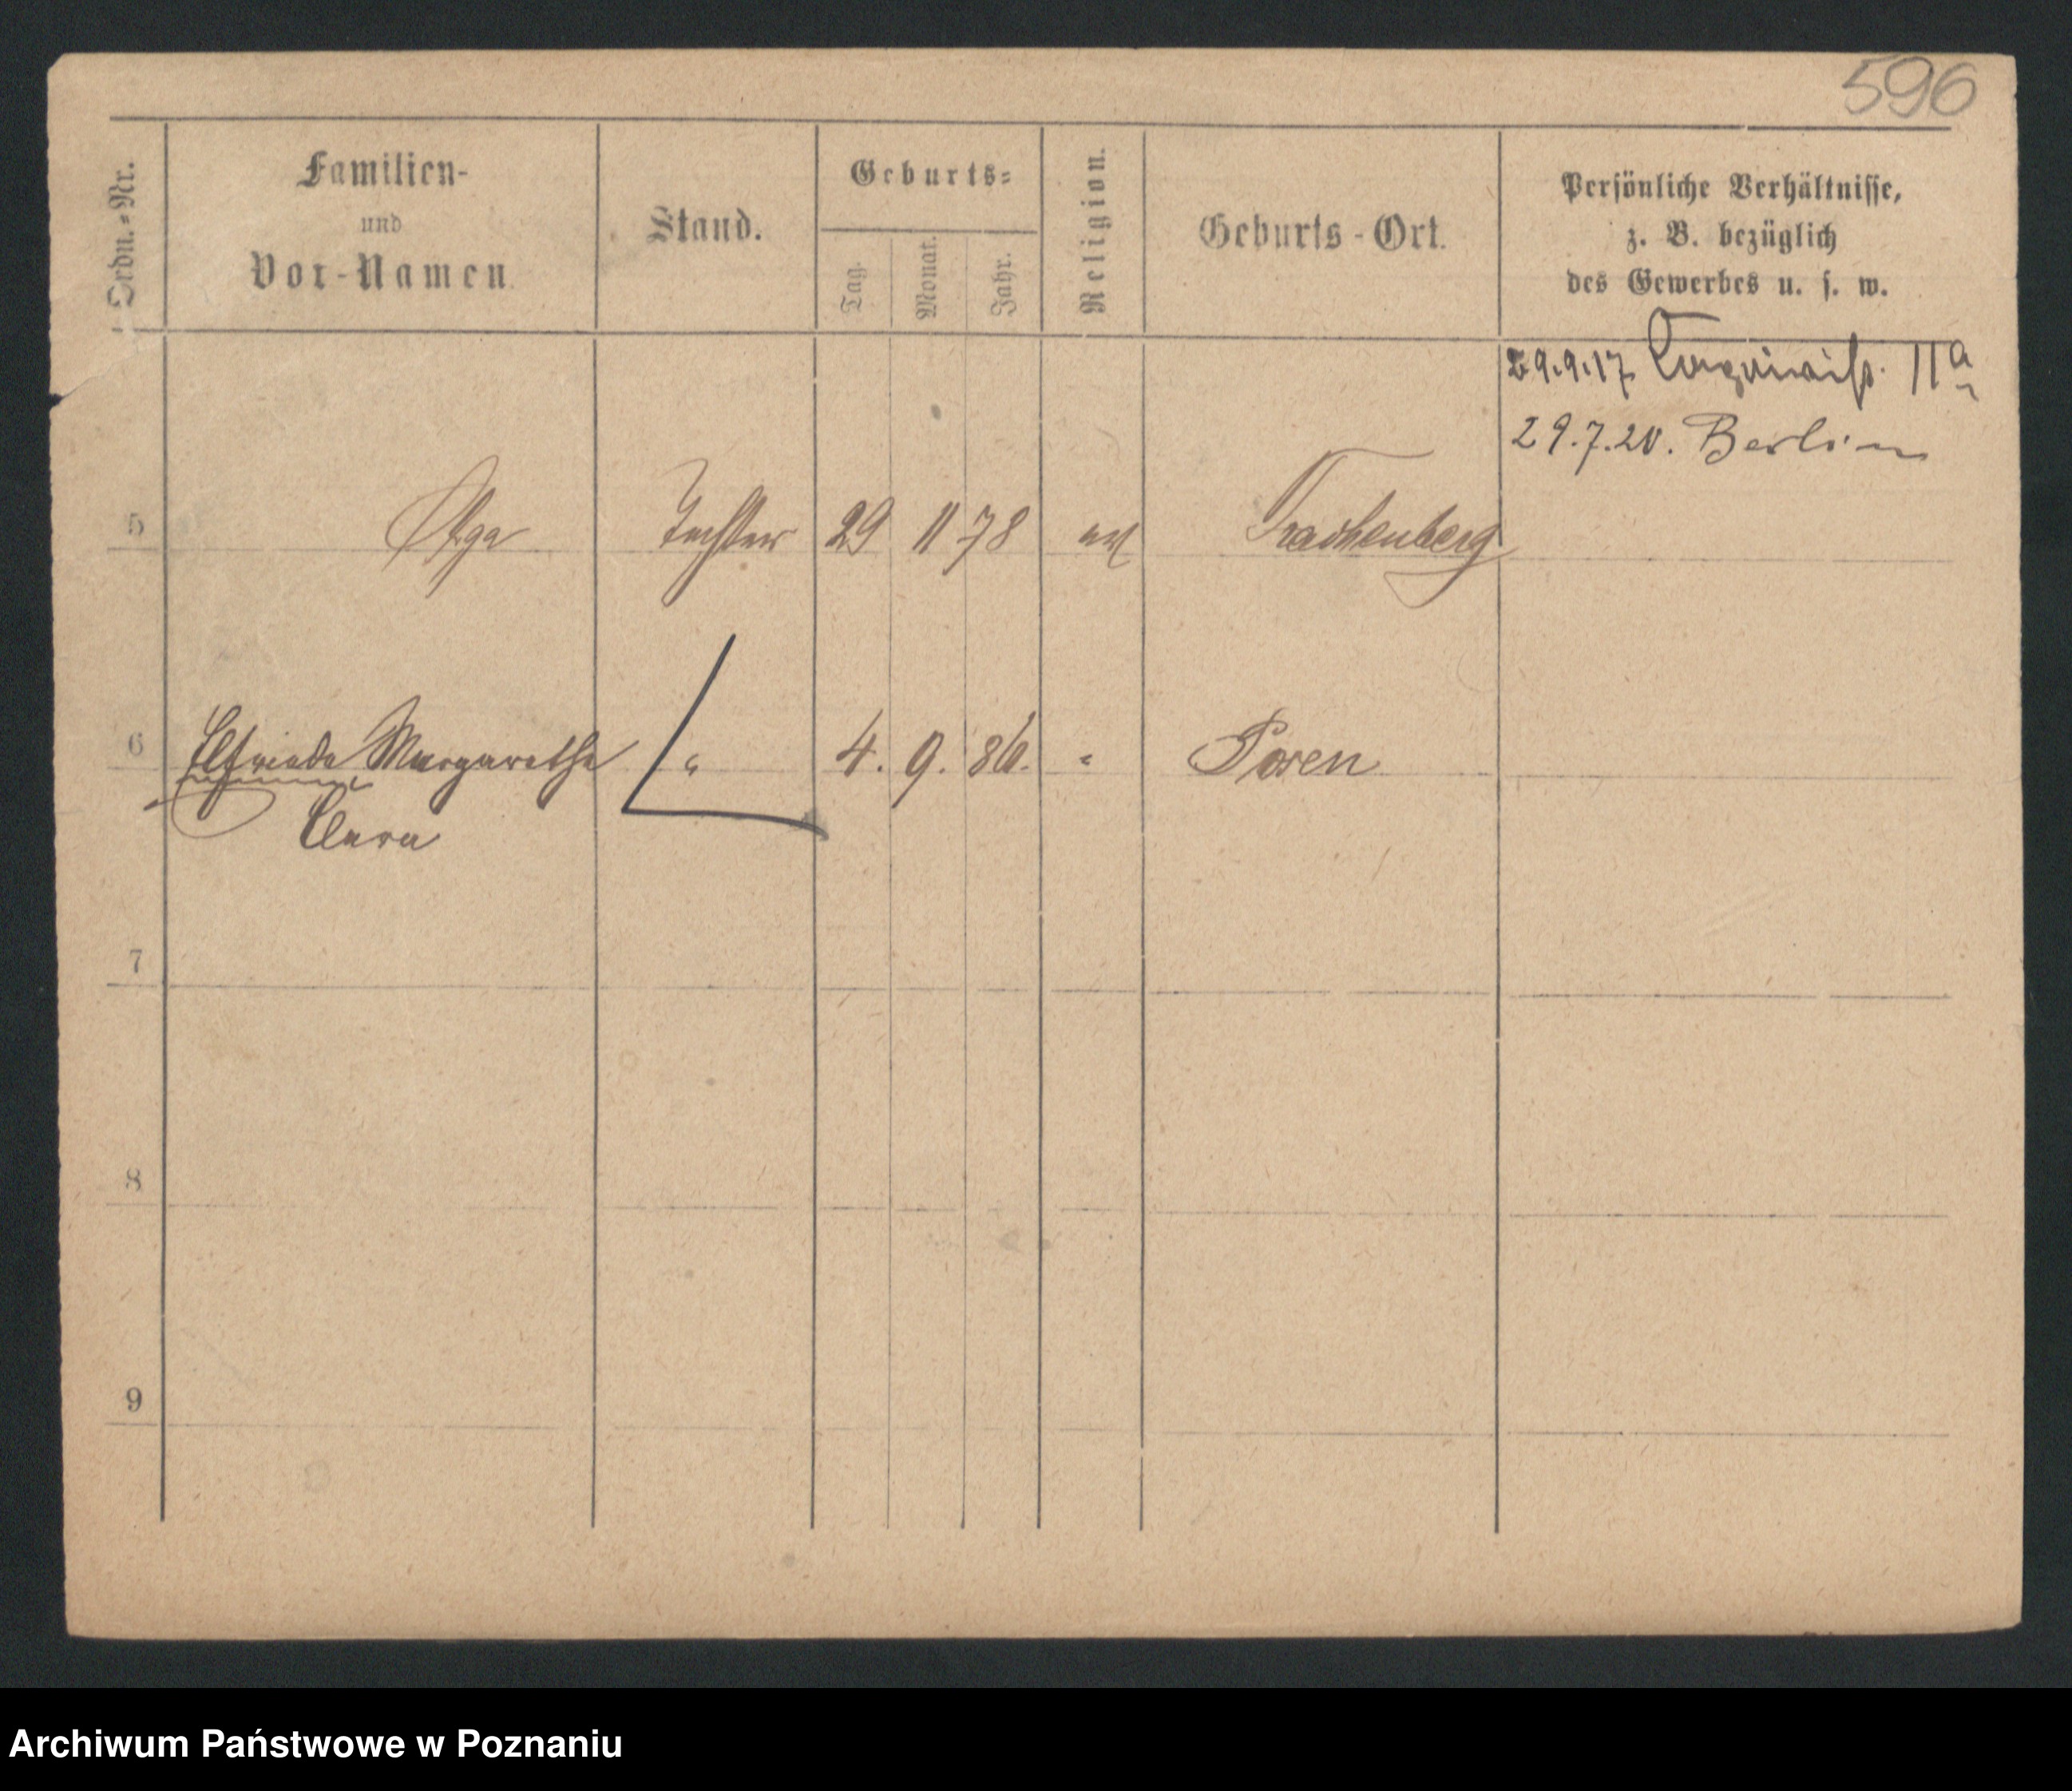 596
Ordn.=Nr.
Familien-
und
Vor-Namen.
Stand.
Geburts=
Tag.
Monat.
Jahr.
Religion.
Geburts-Ort.
Persönliche Verhältnisse,
z. B. bezüglich
des Gewerbes u. s. w.
29.9.17 11a
29.7.20. Berlin
5 Olga Tochter 29 11 78 Trachenberg
6 Elfriede Margarethe " 4. 9. 86. " Posen
Clara
7
8
9
Archiwum Państwowe w Poznaniu